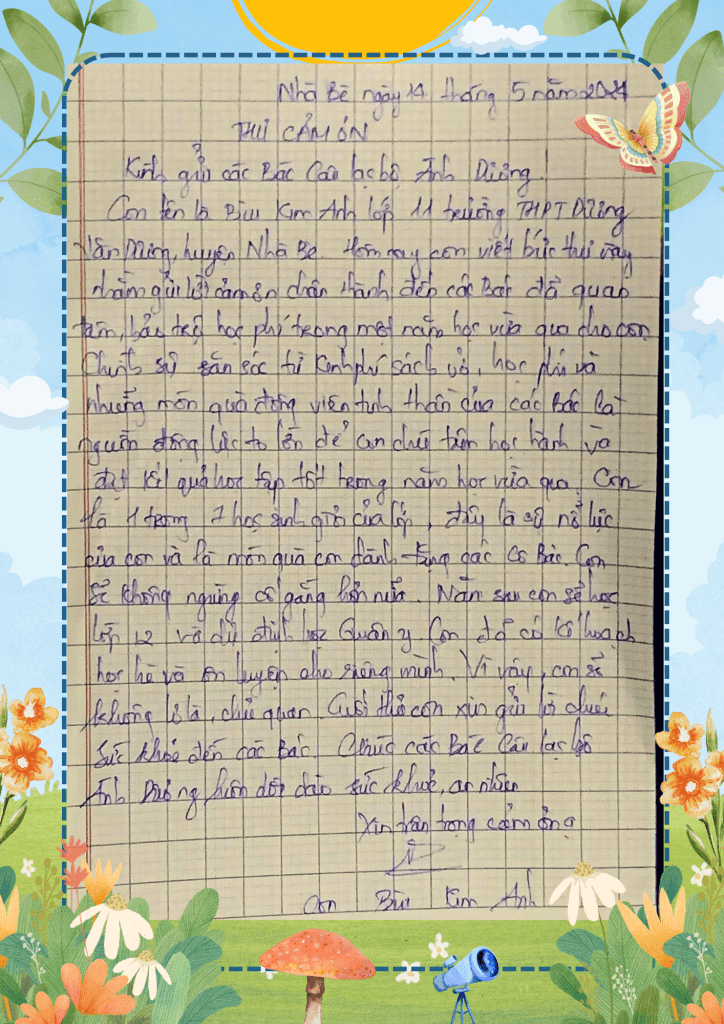 Nhà Bè ngày 14 tháng 5 năm 2024
THƯ CẢM ƠN
Kính gửi các Bác Câu lạc bộ Ánh Dương.
Con tên là Bùi Kim Anh lớp 11 trường THPT Dương
Văn Dương, huyện Nhà Bè. Hôm nay con viết bức thư này
nhằm gửi lời cảm ơn chân thành đến các Bác đã quan
tâm, bảo trợ học phí trong một năm học vừa qua cho con.
Chính sự săn sóc từ kinh phí sách vở, học phí và
những món quà động viên tinh thần của các Bác là
nguồn động lực to lớn để con chú tâm học hành và
đạt kết quả học tập tốt trong năm học vừa qua. Con
là 1 trong 7 học sinh giỏi của lớp, đây là sự nỗ lực
của con và là món quà con dành tặng các Cô Bác. Con
sẽ không ngừng cố gắng hơn nữa. Năm sau con sẽ học
lớp 12 và dự định học Quân y. Con đã có kế hoạch
học hè và ôn luyện cho riêng mình. Vì vậy, con sẽ
không lơ là, chủ quan. Cuối thư con xin gửi lời chúc
sức khoẻ đến các Bác. Chúc các Bác Câu lạc bộ
Ánh Dương luôn dồi dào sức khoẻ, an nhiên
Xin trân trọng cảm ơn ạ
Con Bùi Kim Anh